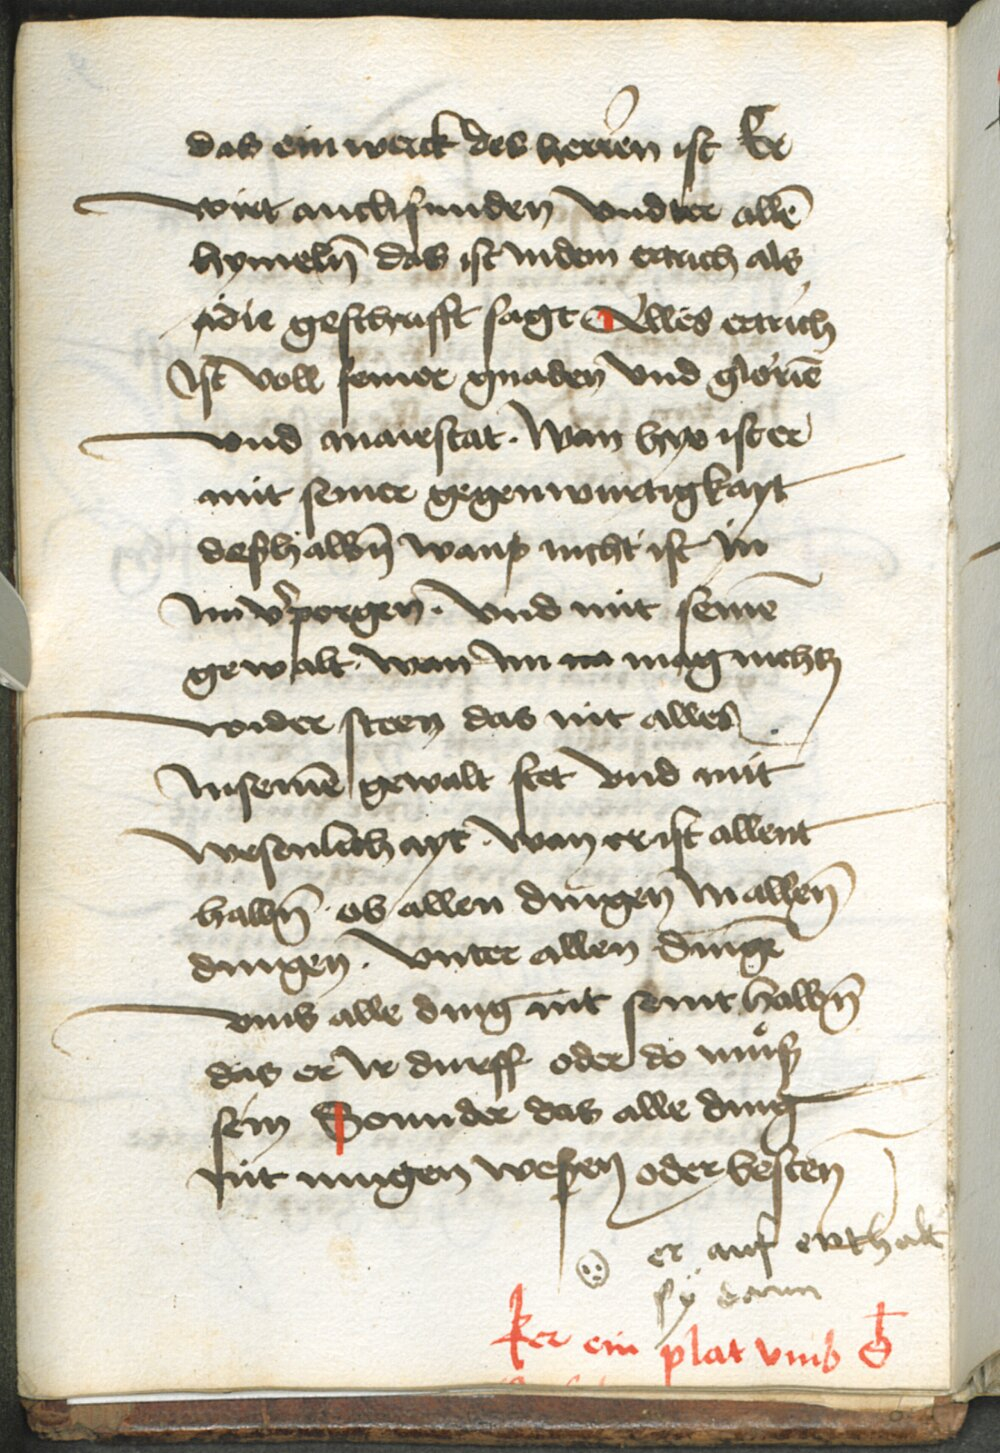 das ein werck des herren ist Er
wirt auch funden vndter allē
hymeln̄ das ist in dem ertrich als
die geschrifft sagt Alles ertrich
ist voll seiner gnaden vnd gloriē
vnd maiestat. Wan hye ist er
mit seiner gegenwurtigkayt
deßhalbn̄ wann nicht ist in
im v̄porgen. vnd mit seinē
gewalt. wan im na mag nichtz
wider steen das nit alles
in seinē gewalt stet vnd mit
wesenlichayt. wan er ist allent
halbn̄ ob allen dingen in allen̄
dingen. vnter allen dingē
vmb alle ding nit seint halbn̄
das er ir durff oder do můß
sein Sonnder das alle ding
nit mugen wesen oder besten
er auf enthalt
sy dann
ker ein plat vmb